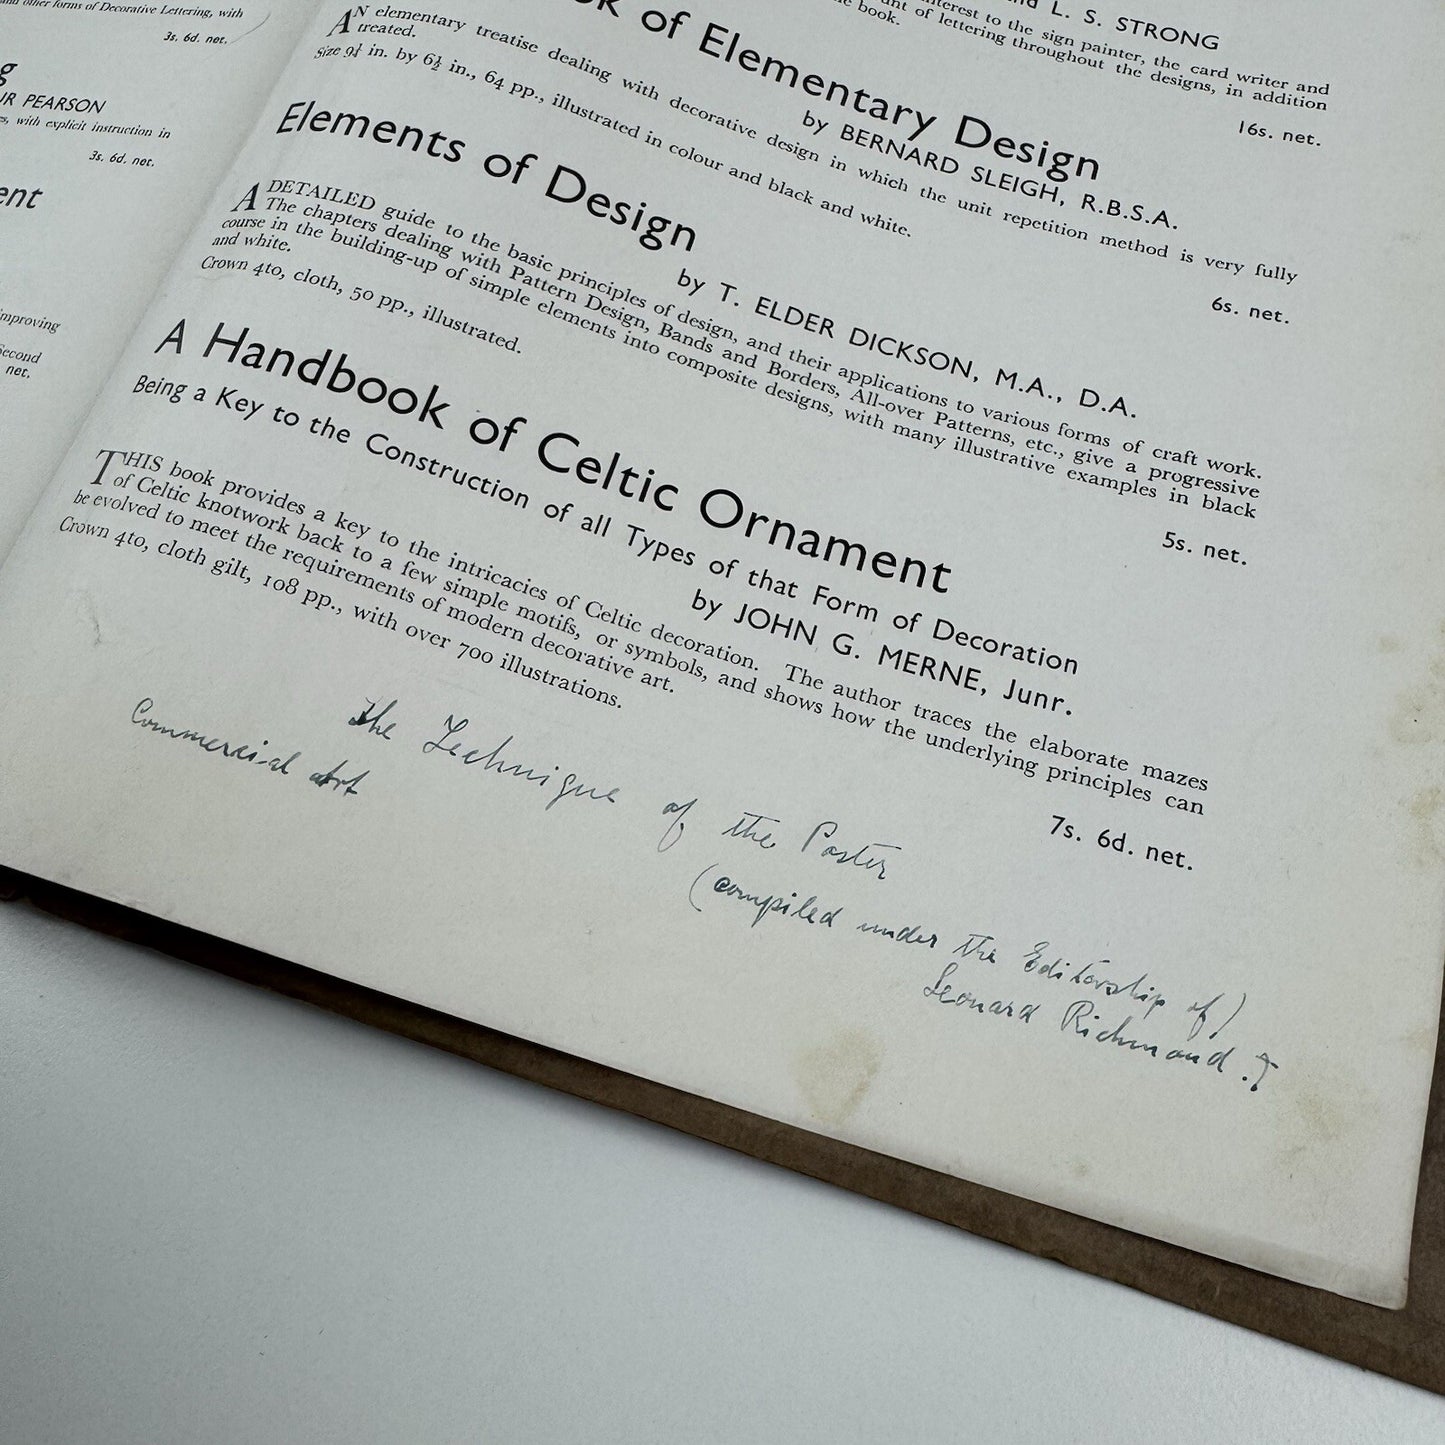 and other forms of Decorative Lettering, with
3s. 6d. net.
UR PEARSON
with explicit instruction in
3s. 6d. net.
improving
Second
net.
and L. S. STRONG
interest to the sign painter, the card writer and
of lettering throughout the designs, in addition
book.
16s. net.
of Elementary Design
by BERNARD SLEIGH, R.B.S.A.
AN elementary treatise dealing with decorative design in which the unit repetition method is very fully
treated.
Size 9¼ in. by 6½ in., 64 pp., illustrated in colour and black and white.
6s. net.
Elements of Design
by T. ELDER DICKSON, M.A., D.A.
A DETAILED guide to the basic principles of design, and their applications to various forms of craft work.
The chapters dealing with Pattern Design, Bands and Borders, All-over Patterns, etc., give a progressive
course in the building-up of simple elements into composite designs, with many illustrative examples in black
and white.
Crown 4to, cloth, 50 pp., illustrated.
5s. net.
A Handbook of Celtic Ornament
Being a Key to the Construction of all Types of that Form of Decoration
by JOHN G. MERNE, Junr.
THIS book provides a key to the intricacies of Celtic decoration. The author traces the elaborate mazes
of Celtic knotwork back to a few simple motifs, or symbols, and shows how the underlying principles can
be evolved to meet the requirements of modern decorative art.
Crown 4to, cloth gilt, 108 pp., with over 700 illustrations.
7s. 6d. net.
The Technique of the Poster
Commercial Art
(compiled under the Editorship of)
Leonard Richmond.